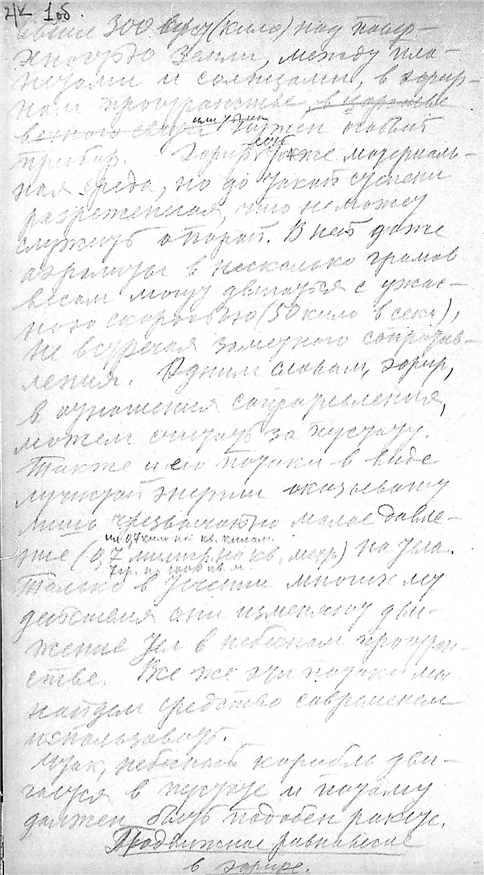 2/к 1об.
выше 300 верст (кило) над повер-
хностью Земли, между пла-
нетами и солнцами, в эфир-
ном пространстве в царстве
вечного света нужен особый
или
прибор. Эфир есть тоже материаль-
ная среда, но до такой степени
разреженная, что не может
служить опорой. В ней даже
аэролиты в несколько граммов
весом могут двигаться с ужас-
ною скоростью (50 кило в сек.),
не встречая заметного сопротив-
ления. Одним словом, эфир,
в отношении сопротивления,
можем считать за пустоту.
Также и его потоки в виде
лучистой энергии оказывают
лишь чрезвычайно малое давле-
ние (0,7 миллигр. на кв. метр) на тела.
Только в течении многих лет
действия они изменяют дви-
жение тел в небесном простран-
стве. Все же эти потоки мы
найдем средство современем
использовать.
Итак, небесный корабль дви-
гается в пустоте и потому
должен быть подобен ракете.
Подвижное равновесие
в эфире.